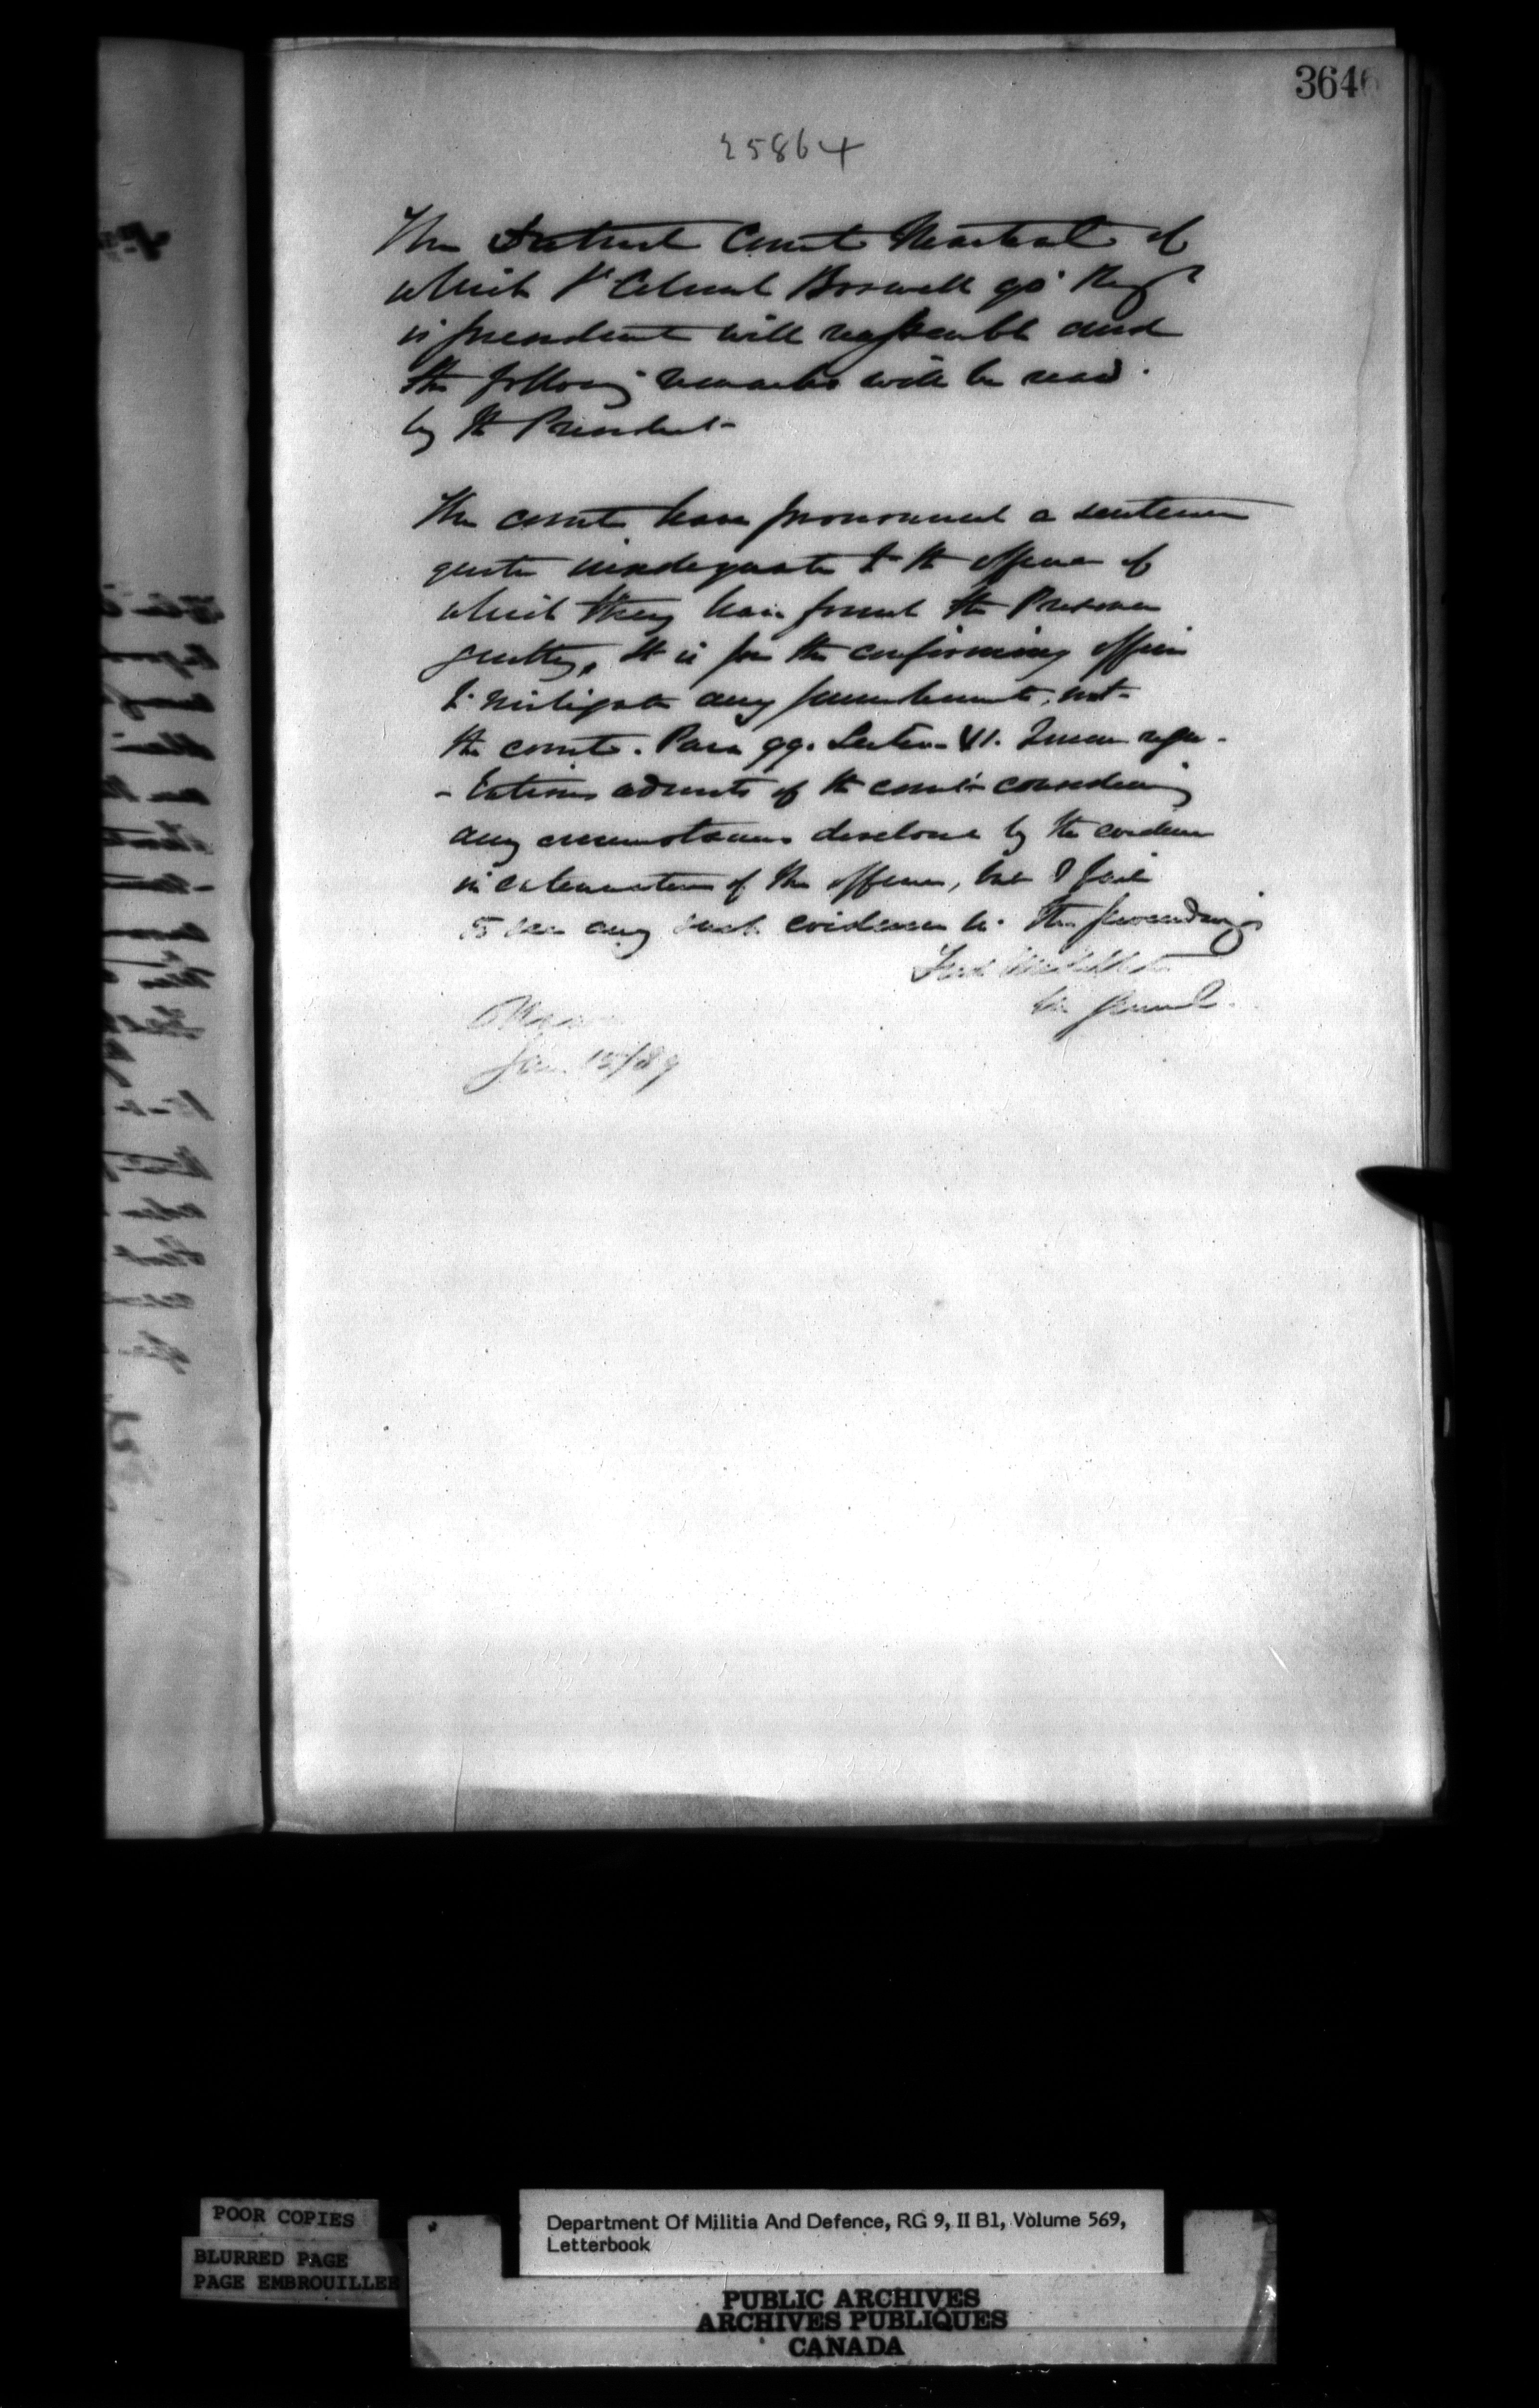 3646
25864
The District Court Martial of
which Lt Colonel Boswell 90 Regt
is president will reassemble and
the following remarks will be read
by the President-
The court have pronounced a sentence
quite inadequate to the offence of
which they have found the Prisoner
guilty. It is for the confirming officer
to mitigate any punishment, not
the court. Para 99. Section VI. Queen regu-
-lations admits of the court considering
any circumstances disclosed by the evidence
in extenuation of the offence, but I fail
to see any such evidence in the proceedings
Fred Middleton
Ottawa
Jan. 15/89
POOR COPIES
BLURRED PAGE
PAGE EMBROUILLEE
Department Of Militia And Defence, RG 9, II B1, Volume 569,
Letterbook
PUBLIC ARCHIVES
ARCHIVES PUBLIQUES
CANADA